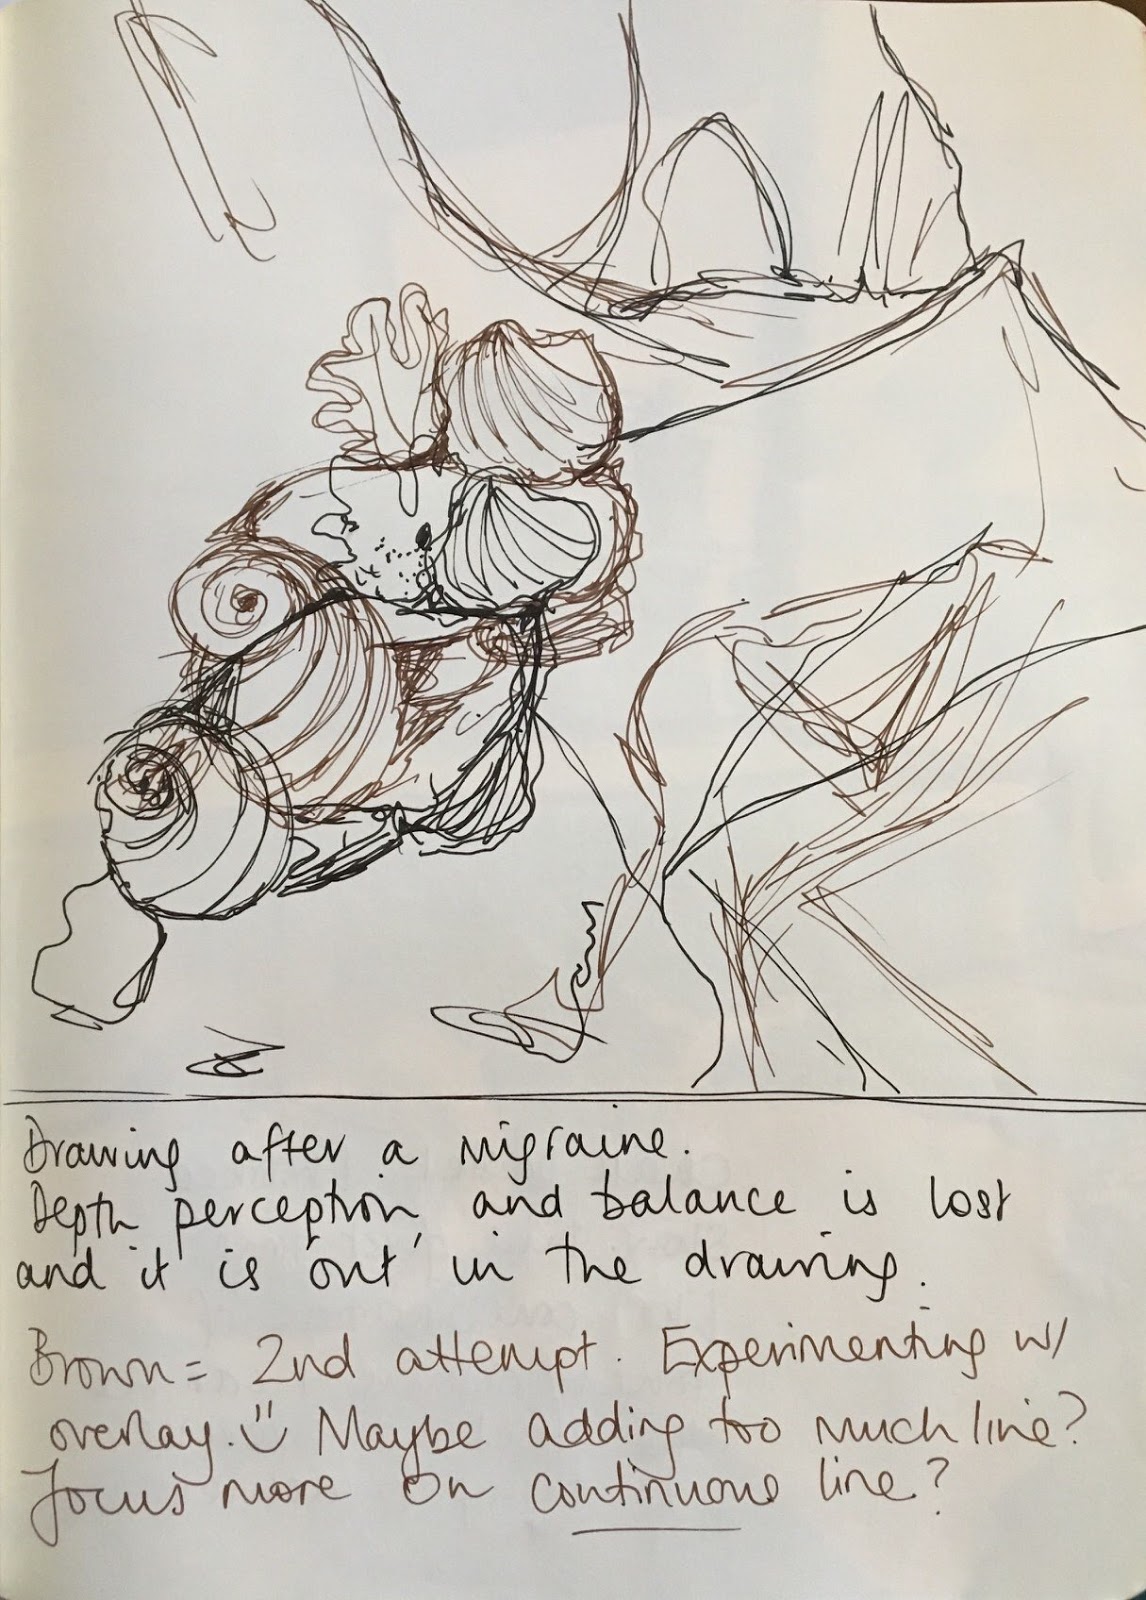 Drawing after a migraine.
Depth perception, and balance is lost
and it is 'out' in the drawing.
Brown = 2nd attempt. Experimenting w/
overlay. Maybe adding too much line?
Focus more on continuous line?